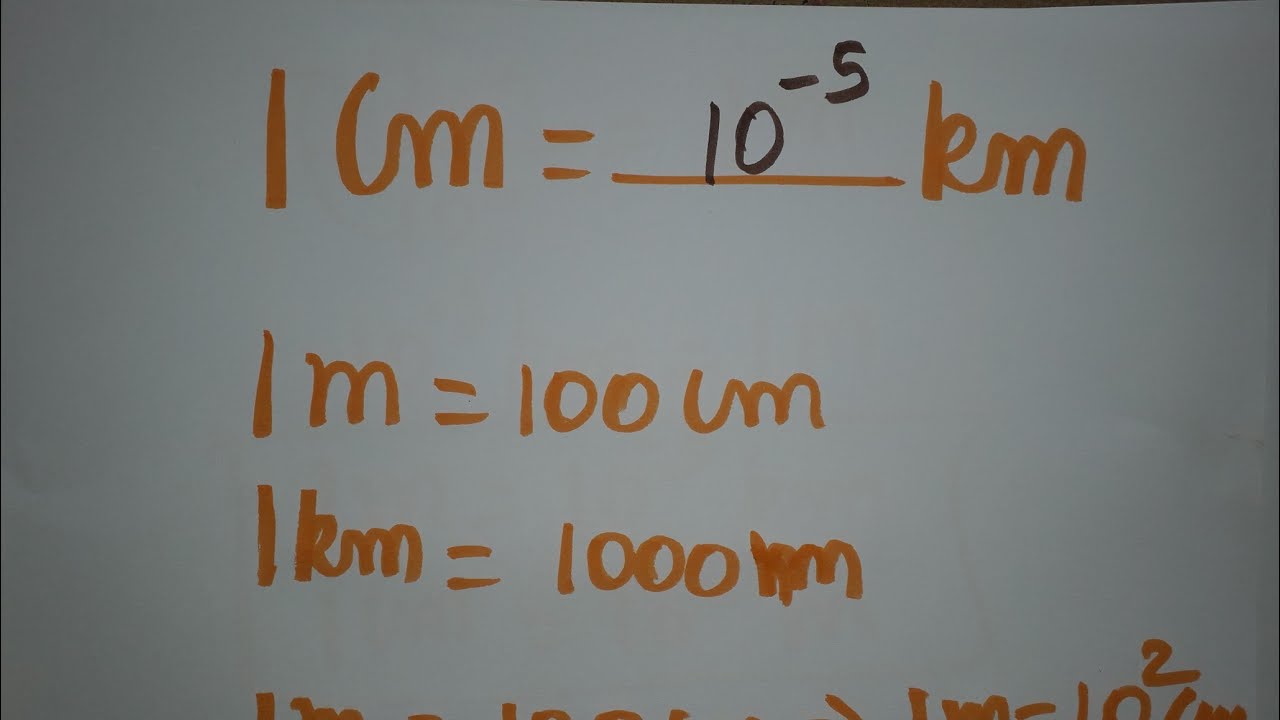 1 Cm = 10⁻⁵ km
1 m = 100 cm
1 km = 1000 m
1 m = 100 cm ⇒ 1 m = 10² cm